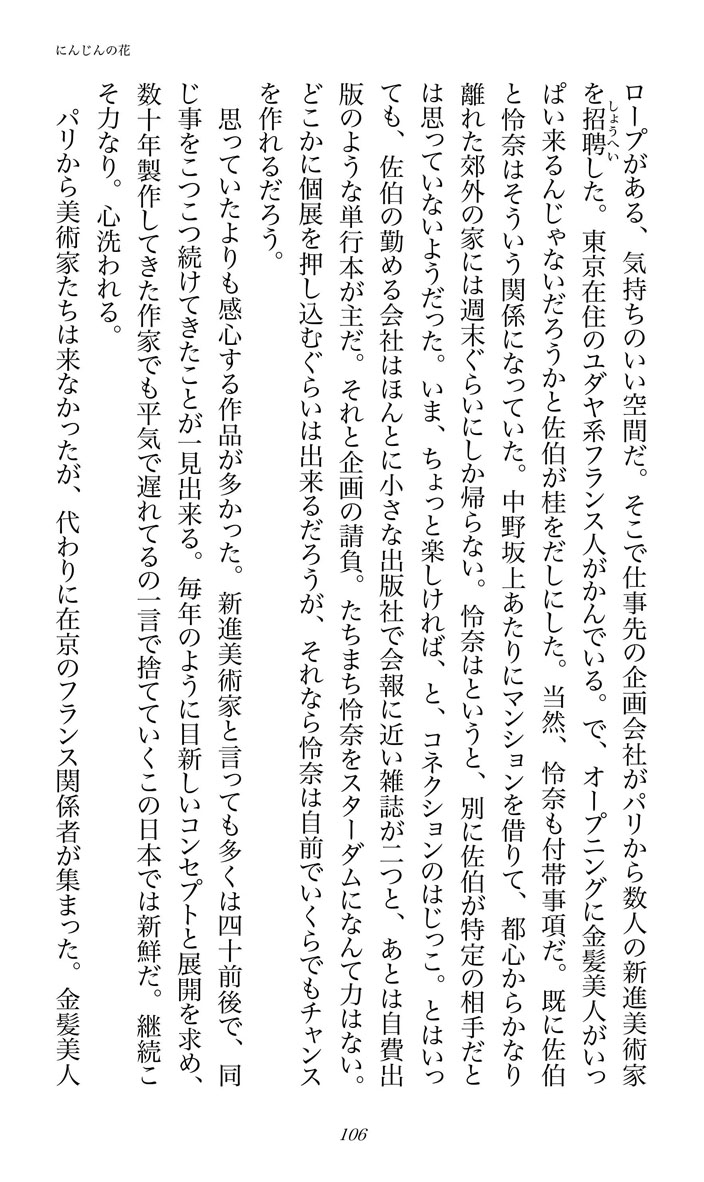 にんじんの花
ロープがある、気持ちのいい空間だ。そこで仕事先の企画会社がパリから数人の新進美術家
を招聘した。東京在住のユダヤ系フランス人がかんでいる。で、オープニングに金髪美人がいっ
しょうへい
ぱい来るんじゃないだろうかと佐伯が桂をだしにした。当然、怜奈も付帯事項だ。既に佐伯
と怜奈はそういう関係になっていた。中野坂上あたりにマンションを借りて、都心からかなり
離れた郊外の家には週末ぐらいにしか帰らない。怜奈はというと、別に佐伯が特定の相手だと
は思っていないようだった。いま、ちょっと楽しければ、と、コネクションのはじっこ。とはいっ
ても、佐伯の勤める会社はほんとに小さな出版社で会報に近い雑誌が二つと、あとは自費出
版のような単行本が主だ。それと企画の請負。たちまち怜奈をスターダムになんて力はない。
どこかに個展を押し込むぐらいは出来るだろうが、それなら怜奈は自前でいくらでもチャンス
を作れるだろう。
思っていたよりも感心する作品が多かった。新進美術家と言っても多くは四十前後で、同
じ事をこつこつ続けてきたことが一見出来る。毎年のように目新しいコンセプトと展開を求め、
数十年製作してきた作家でも平気で遅れてるの一言で捨てていくこの日本では新鮮だ。継続こ
そ力なり。心洗われる。
パリから美術家たちは来なかったが、代わりに在京のフランス関係者が集まった。金髪美人
106